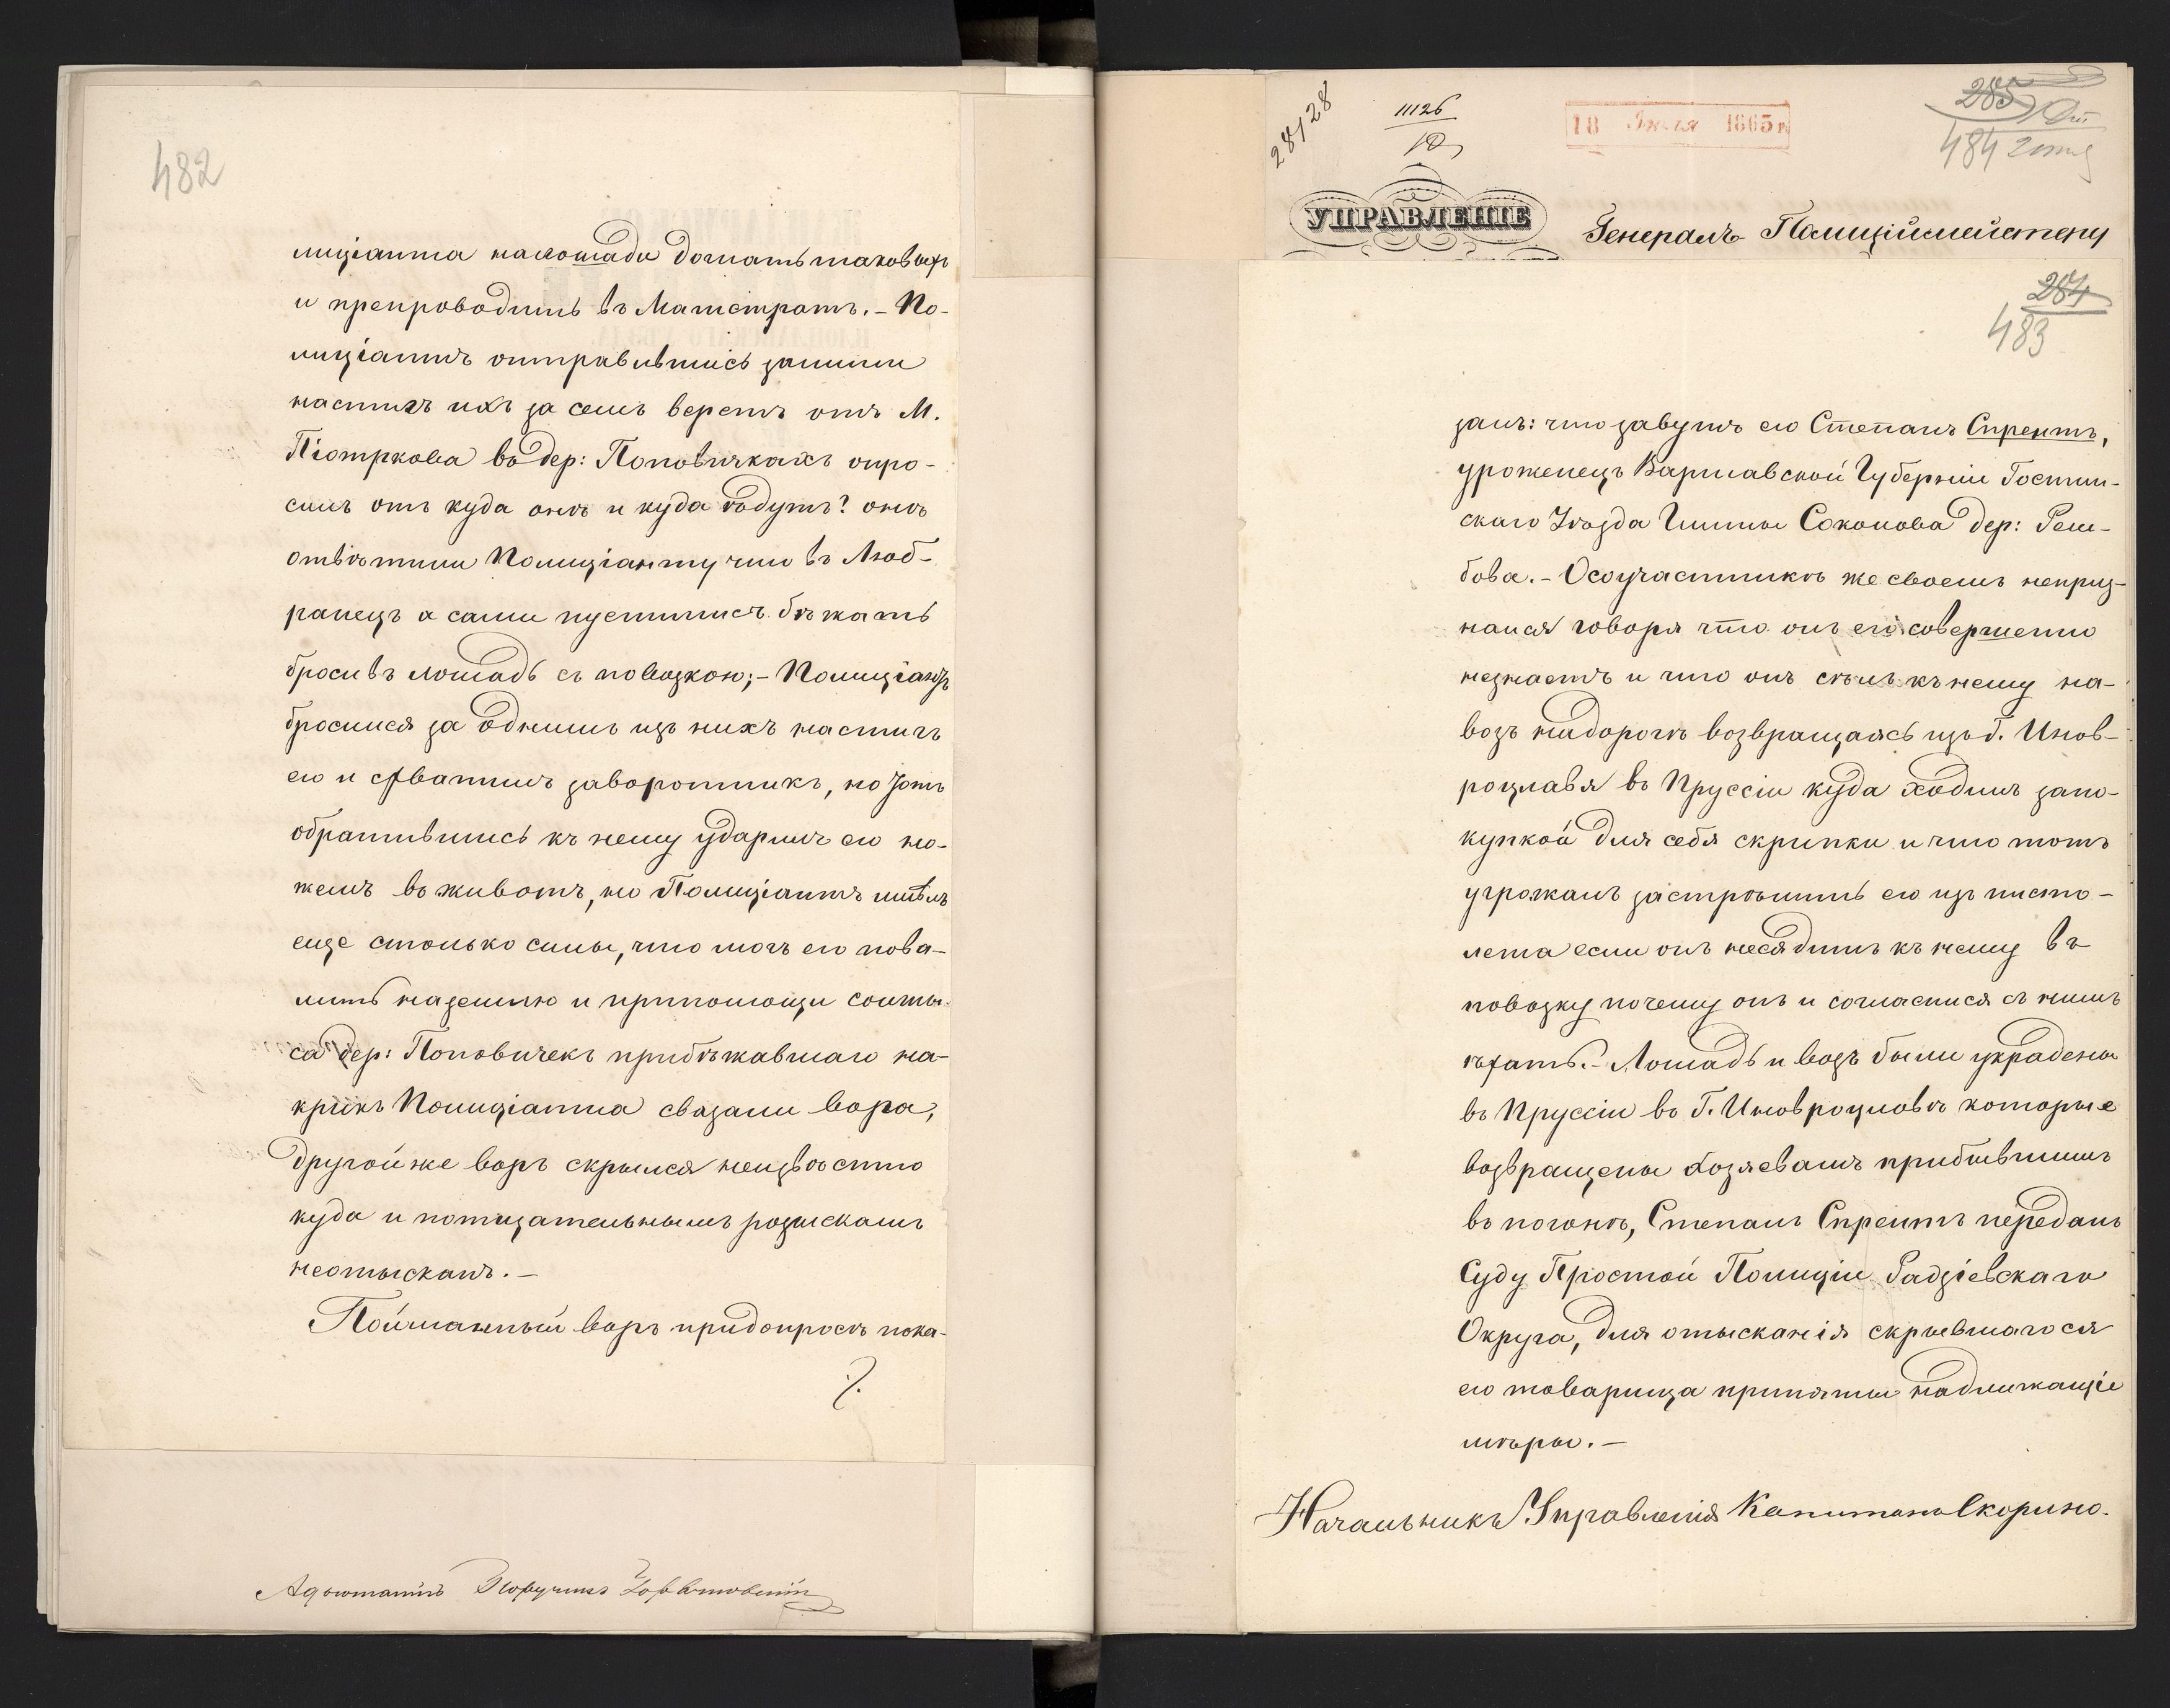 482
лиціанта на лошади догнать таковыхъ
и препроводить въ Магистратъ. – По-
лиціантъ отправившись за ними
настигъ ихъ за семь верстъ отъ М.
Піотркова въ дер: Поповичкахъ опро-
силъ отъ куда онѣ и куда ѣдутъ? онѣ
отвѣтили Полиціанту что въ Люб-
ранецъ а сами пустились бѣжать
бросивъ лошадь съ повозкою; – Полиціантъ
бросился за однимъ изъ нихъ настигъ
его и схватилъ за воротникъ, но тотъ
обратившись къ нему ударилъ его но-
жемъ въ животъ, но Полиціантъ имѣлъ
еще столько силы, что могъ его пова-
лить на землю и при помощи солты-
са дер: Поповичекъ прибѣжавшаго на
крикъ Полиціанта связали вора,
другой же воръ скрылся неизвѣстно
куда и по тщательнымъ розыскамъ
не отысканъ. –
Пойманный воръ при допросѣ пока-
./.
Адъютантъ Поручикъ
28128
11126
18 Іюля 1865 г.
285
484
УПРАВЛЕНІЕ
Генералъ Полиціймейстеру
284
483
залъ: что завутъ его Степанъ Спрентъ,
уроженецъ Варшавской Губерніи Гостин-
скаго Уѣзда Гмины Соколова дер: Рем-
бова. – О соучастникѣ же своемъ непри-
знался говоря что онъ его совершенно
незнаетъ и что онъ сѣлъ къ нему на
возъ на дорогѣ возвращаясь изъ г. Инов-
роцлавя въ Пруссіи куда ходилъ за по-
купкой для себя скрипки и что тотъ
угрожалъ застрѣлить его изъ писто-
лета если онъ несядитъ къ нему въ
повозку почему онъ и согласился съ нимъ
ѣхать. – Лошадь и возъ были украдены
въ Пруссіи въ Г. Иновроцловѣ которые
возвращены хозяевамъ прибывшимъ
въ погонѣ, Степанъ Спрентъ переданъ
Суду Простой Полиціи Радзіевскаго
Округа, для отысканія скрывшагося
его товарища приняты надлежащіе
мѣры. –
Начальникъ Управленія Капитанъ Скорино.